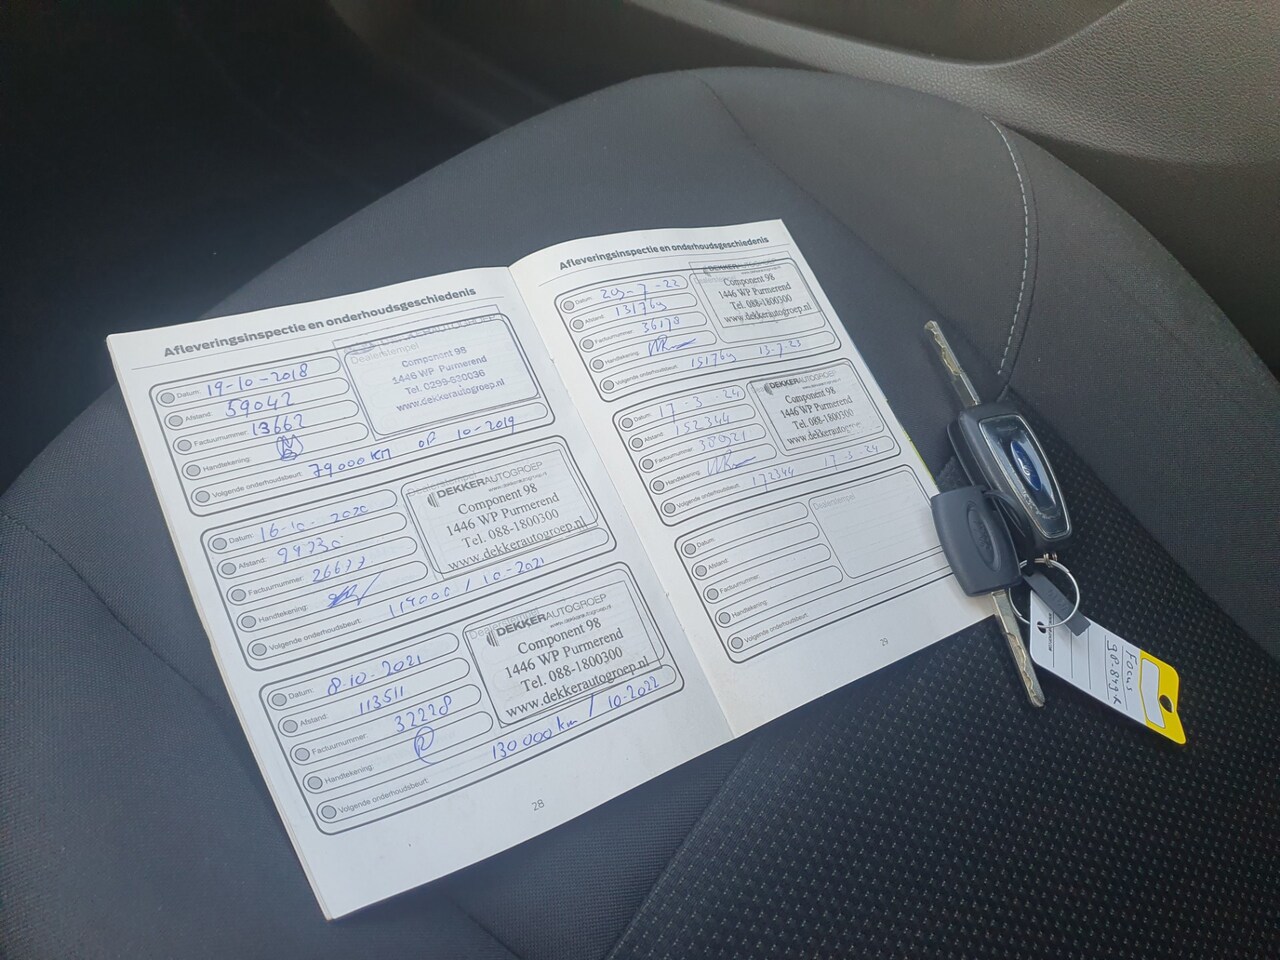 Afleveringsinspectie en onderhoudsgeschiedenis
Datum: 19-10-2018
Afstand: 59042
Factuurnummer: 13662
Handtekening:
Volgende onderhoudsbeurt: 79000 KM OF 10-2019
Dealerstempel
Component 98
1446 WP Purmerend
Tel. 0299-630036
www.dekkerautogroep.nl
Datum: 16-10-2020
Afstand:
Factuurnummer: 26677
Handtekening:
Volgende onderhoudsbeurt: 119000 / 10-2021
DEKKERAUTOGROEP
www.dekkerautogroep.nl
Component 98
1446 WP Purmerend
Tel. 088-1800300
www.dekkerautogroep.nl
Datum: 8-10-2021
Afstand: 113511
Factuurnummer: 32228
Handtekening:
Volgende onderhoudsbeurt: 130 000 km / 10-2022
DEKKERAUTOGROEP
www.dekkerautogroep.nl
Component 98
1446 WP Purmerend
Tel. 088-1800300
www.dekkerautogroep.nl
28
Afleveringsinspectie en onderhoudsgeschiedenis
Datum: 20-7-22
Afstand: 131769
Factuurnummer: 36178
Handtekening:
Volgende onderhoudsbeurt: 151769 13-7-23
DEKKERAUTOGROEP
Component 98
1446 WP Purmerend
Tel. 088-1800300
www.dekkerautogroep.nl
Datum: 17-3-24
Afstand: 152344
Factuurnummer: 38921
Handtekening:
Volgende onderhoudsbeurt: 172344
DEKKERAUTOGROEP
Component 98
1446 WP Purmerend
Tel. 088-1800300
www.dekkerautogroep.nl
Datum:
Afstand:
Factuurnummer:
Handtekening:
Volgende onderhoudsbeurt:
Dealerstempel
29
Ford
Focus